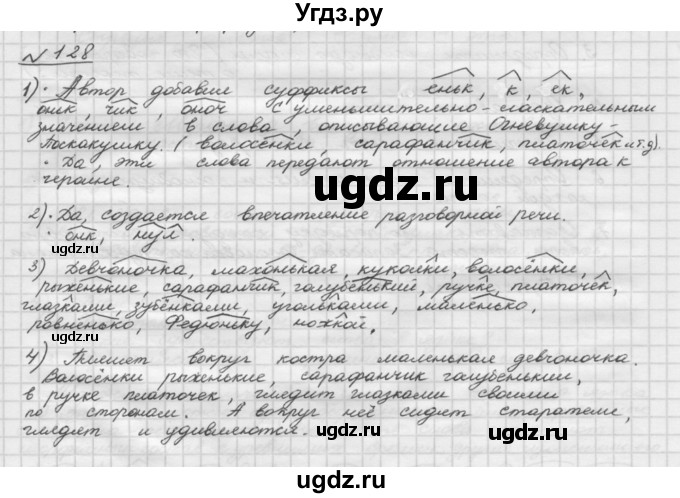 Угдз.ру
№128
1)· Автор добавил суффиксы еньк, к, ек,
оник, чик, оноч с уменьшительно-ласкательным
значением в слова, описывающие Огневушку-
Поскакушку. (волосёнки, сарафанчик, платочек и т.д).
· Да, эти слова передают отношение автора к
героине.
ugdz.ru ugdz.ru
2)· Да, создается впечатление разговорной речи.
· онк, нул.
3) Девчоночка, махонькая, куколки, волосёнки,
рыженькие, сарафанчик, голубенький, ручке, платочек,
глазками, зубёнками, угольками, маленько,
ровненько, Федюньку, ножкой.
ugdz.ru ugdz.ru
4) Пляшет вокруг костра маленькая девчоночка.
Волосёнки рыженькие, сарафанчик голубенький,
в ручке платочек, глядит глазками своими
по сторонам. А вокруг неё сидят старатели,
глядят и удивляются.
ugdz.ru ugdz.ru